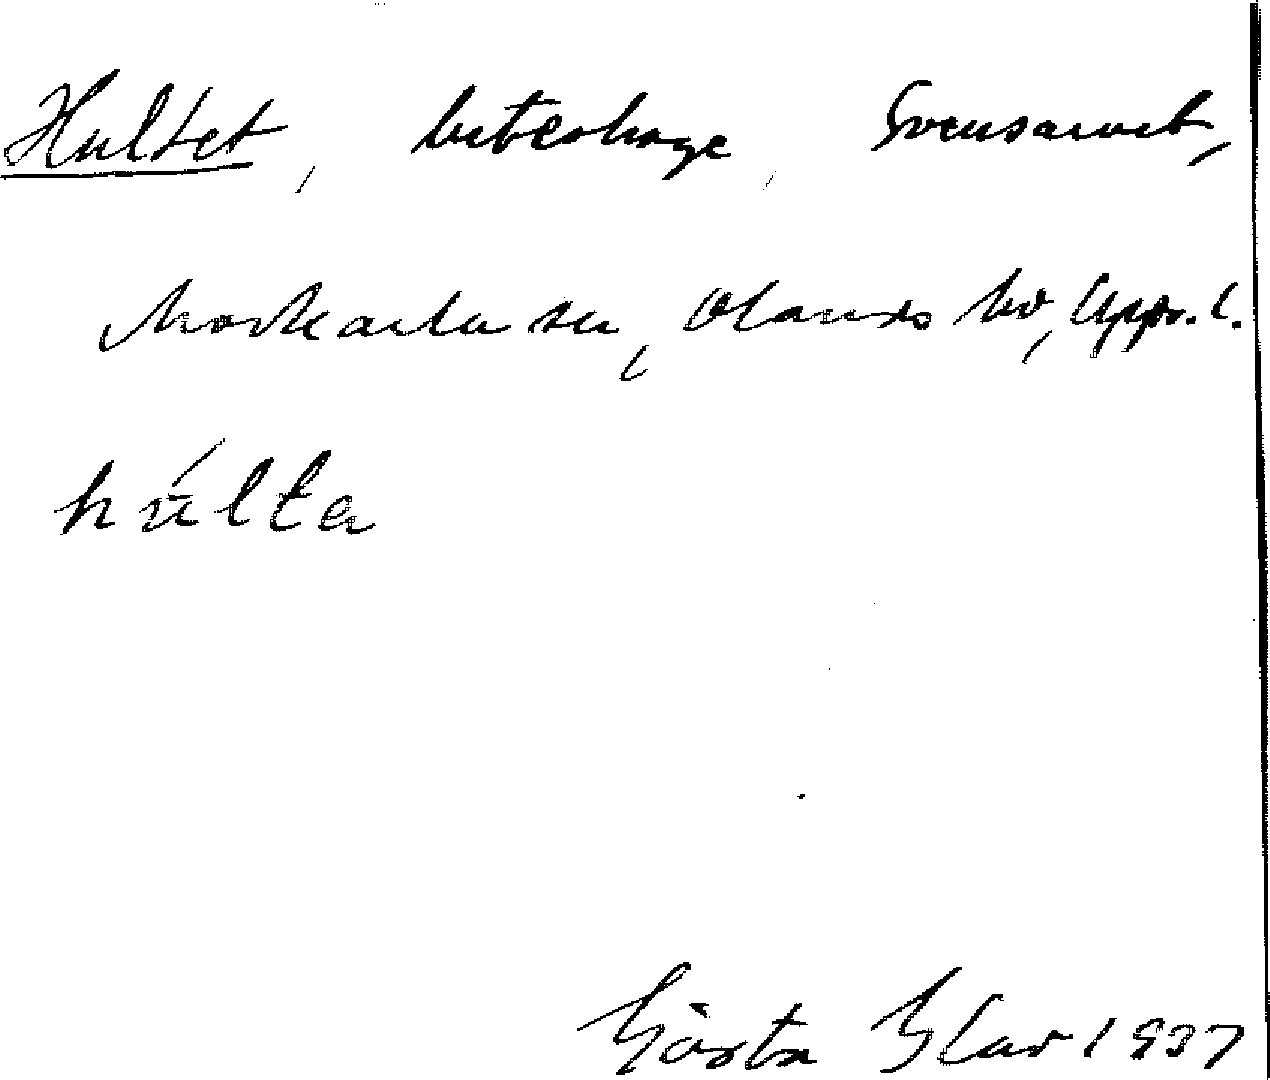 Hultet, beteshage, Svensarvet,
Morkarla sn, Olands hd, Upps. l.
húlta
Gösta
1937